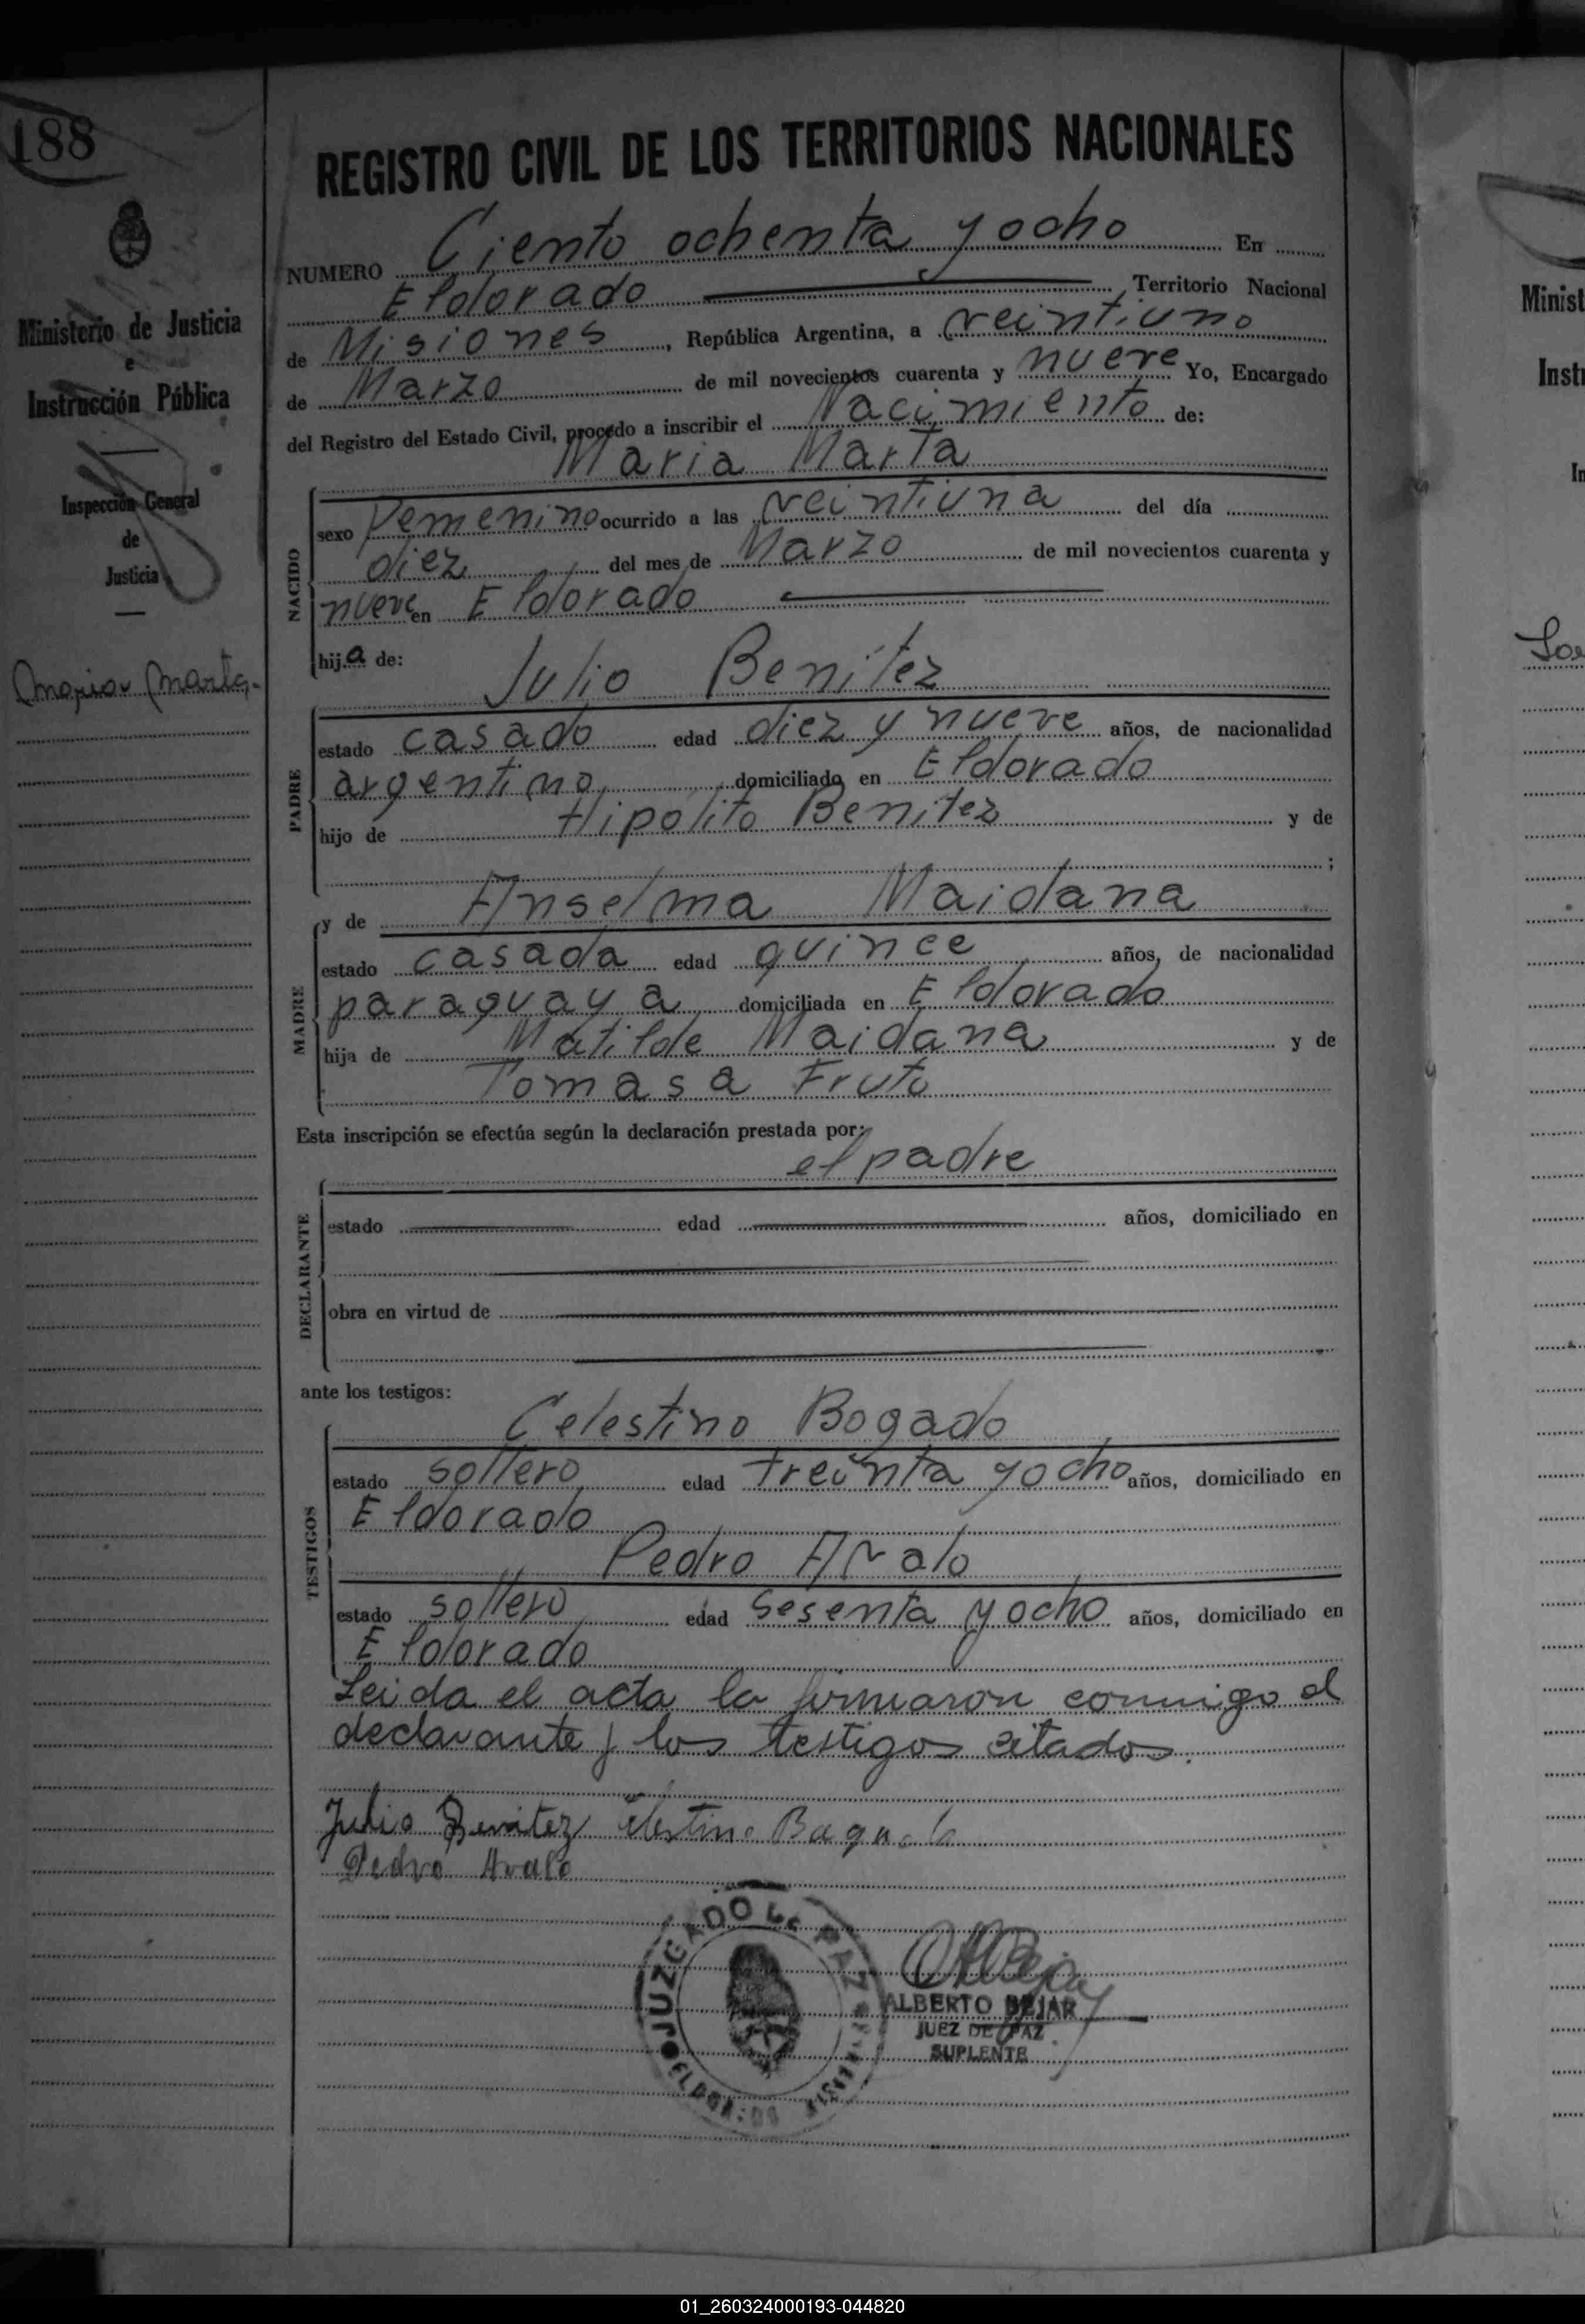 188
Ministerio de Justicia
e
Instrucción Pública
Inspección General
de
Justicia
Maria Marta.-
REGISTRO CIVIL DE LOS TERRITORIOS NACIONALES
NUMERO Ciento ochenta y ocho En
Eldorado , Territorio Nacional
de Misiones , República Argentina, a veintiuno
de Marzo de mil novecientos cuarenta y nueve Yo, Encargado
del Registro del Estado Civil, procedo a inscribir el Nacimiento de:
Maria Marta
NACIDO
sexo Femenino ocurrido a las veintiuna del día
diez del mes de Marzo de mil novecientos cuarenta y
nueve en Eldorado
hija de:
Julio Benítez
PADRE
estado casado edad diez y nueve años, de nacionalidad
argentino domiciliado en Eldorado
hijo de Hipólito Benitez y de
;
MADRE
y de Anselma Maidana
estado casada edad quince años, de nacionalidad
paraguaya domiciliada en Eldorado
hija de Matilde Maidana y de
Tomasa Fruto
Esta inscripción se efectúa según la declaración prestada por:
el padre
DECLARANTE
estado edad años, domiciliado en
obra en virtud de
ante los testigos:
TESTIGOS
Celestino Bogado
estado soltero edad treinta y ocho años, domiciliado en
Eldorado
Pedro Avalo
estado soltero edad sesenta y ocho años, domiciliado en
Eldorado
Leida el acta la firmaron conmigo el
declarante y los testigos citados.
Julio Benitez Celestino Bogado
Pedro Avalo
JUZGADO DE PAZ
ELDORADO MISIONES
ALBERTO BEJAR
JUEZ DE PAZ
SUPLENTE
Minist
Inst
In
01_260324000193-044820